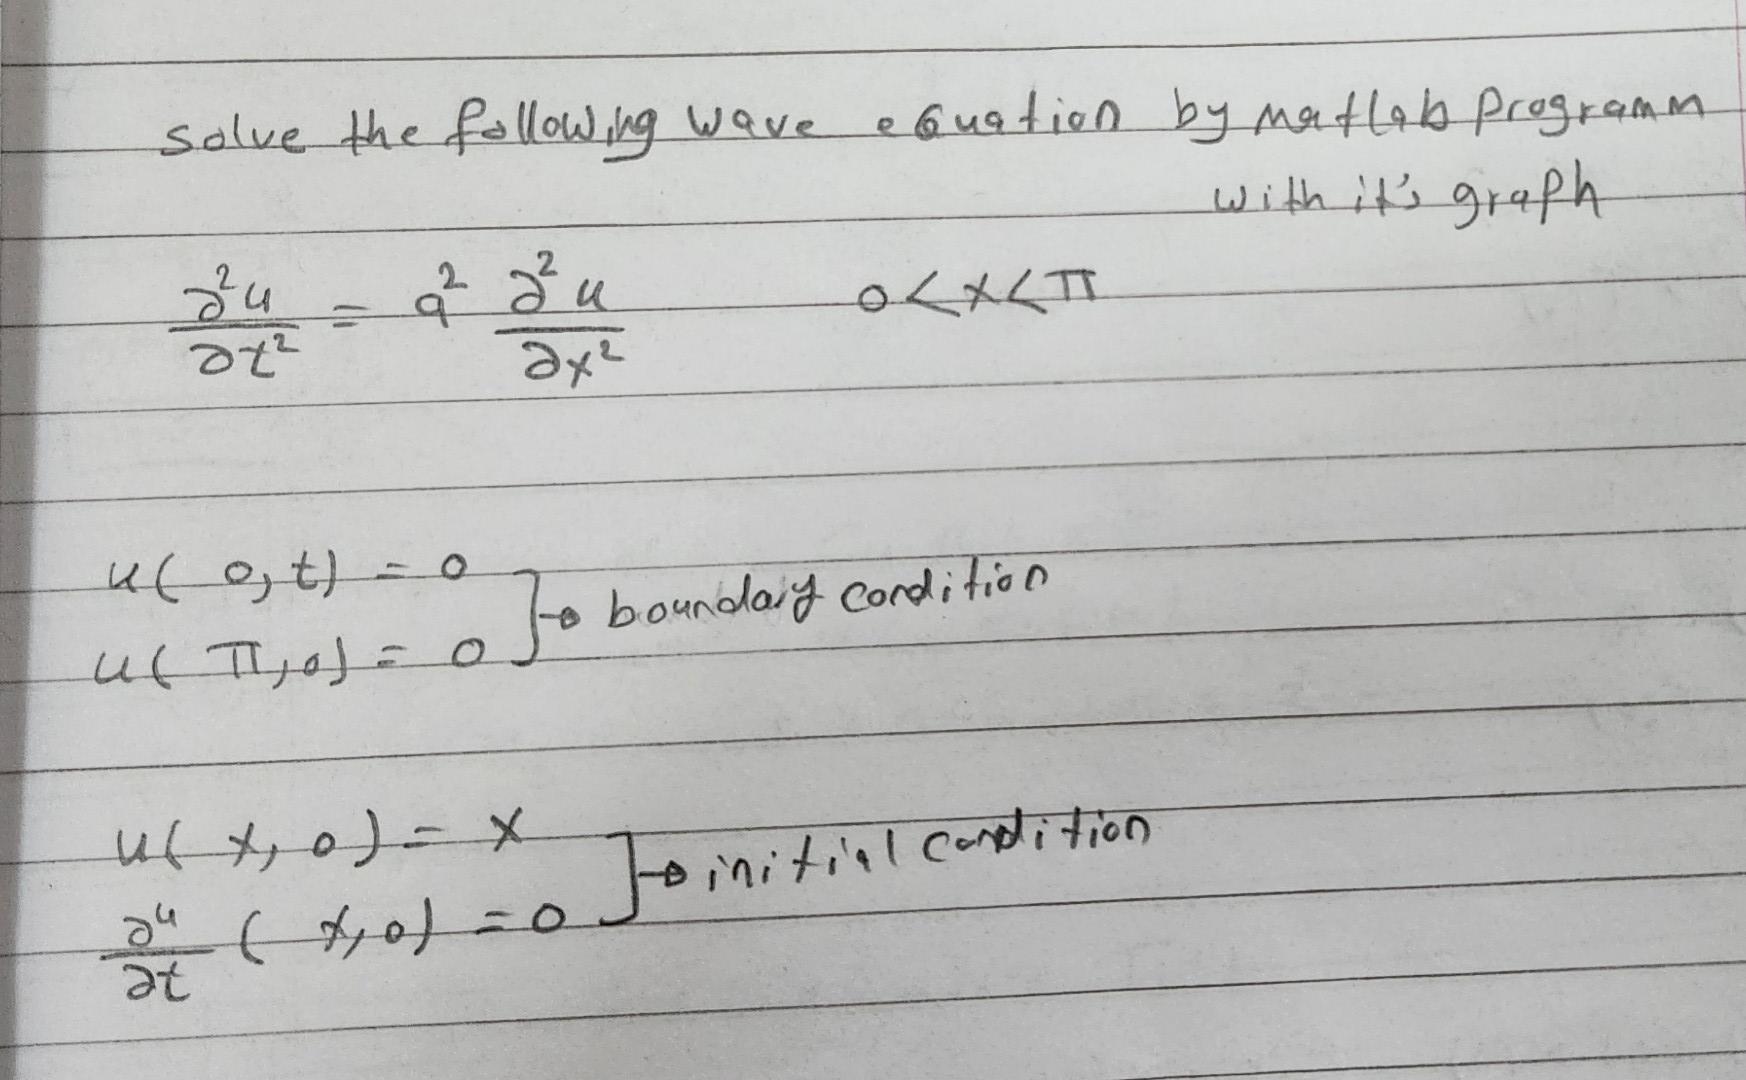 solve the following wave equation by matlab programm
with it's graph
∂²u/∂t² = a² ∂²u/∂x² 0<x<π
u(0,t) = 0
u(π,0) = 0 → boundary condition
u(x,0) = x
∂u/∂t (x,0) = 0 → initial condition